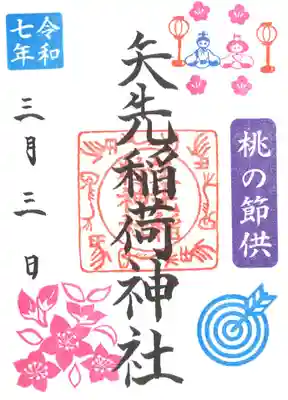 桃の節供
矢先稲荷神社
令和
七年
三月三日